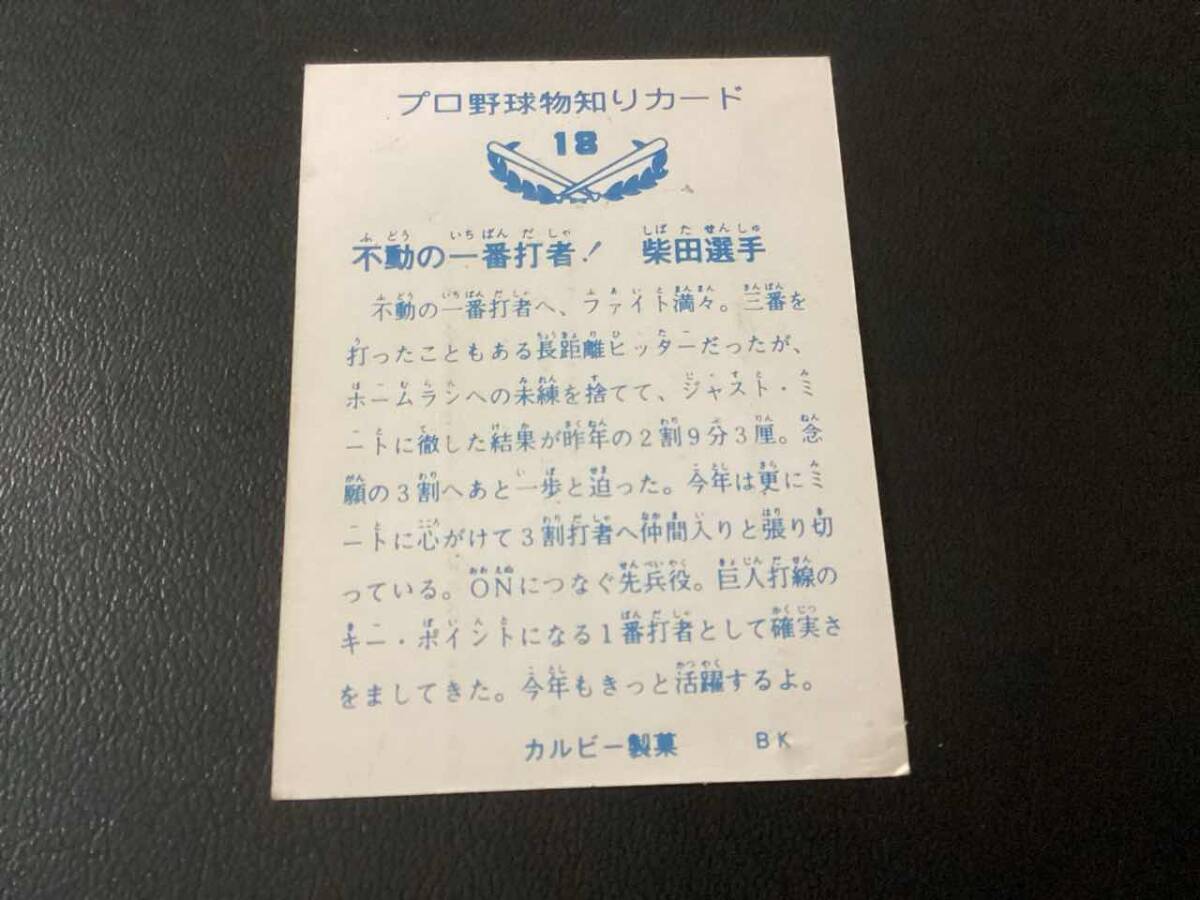 プロ野球物知りカード
18
不動の一番打者! 柴田選手
不動の一番打者へ、ファイト満々。三番を
打ったこともある長距離ヒッターだったが、
ホームランへの未練を捨てて、ジャスト・ミ
ートに徹した結果が昨年の2割9分3厘。念
願の3割へあと一歩と迫った。今年は更にミ
ートに心がけて3割打者へ仲間入りと張り切
っている。ONにつなぐ先兵役。巨人打線の
キー・ポイントになる1番打者として確実さ
をましてきた。今年もきっと活躍するよ。
カルビー製菓 BK